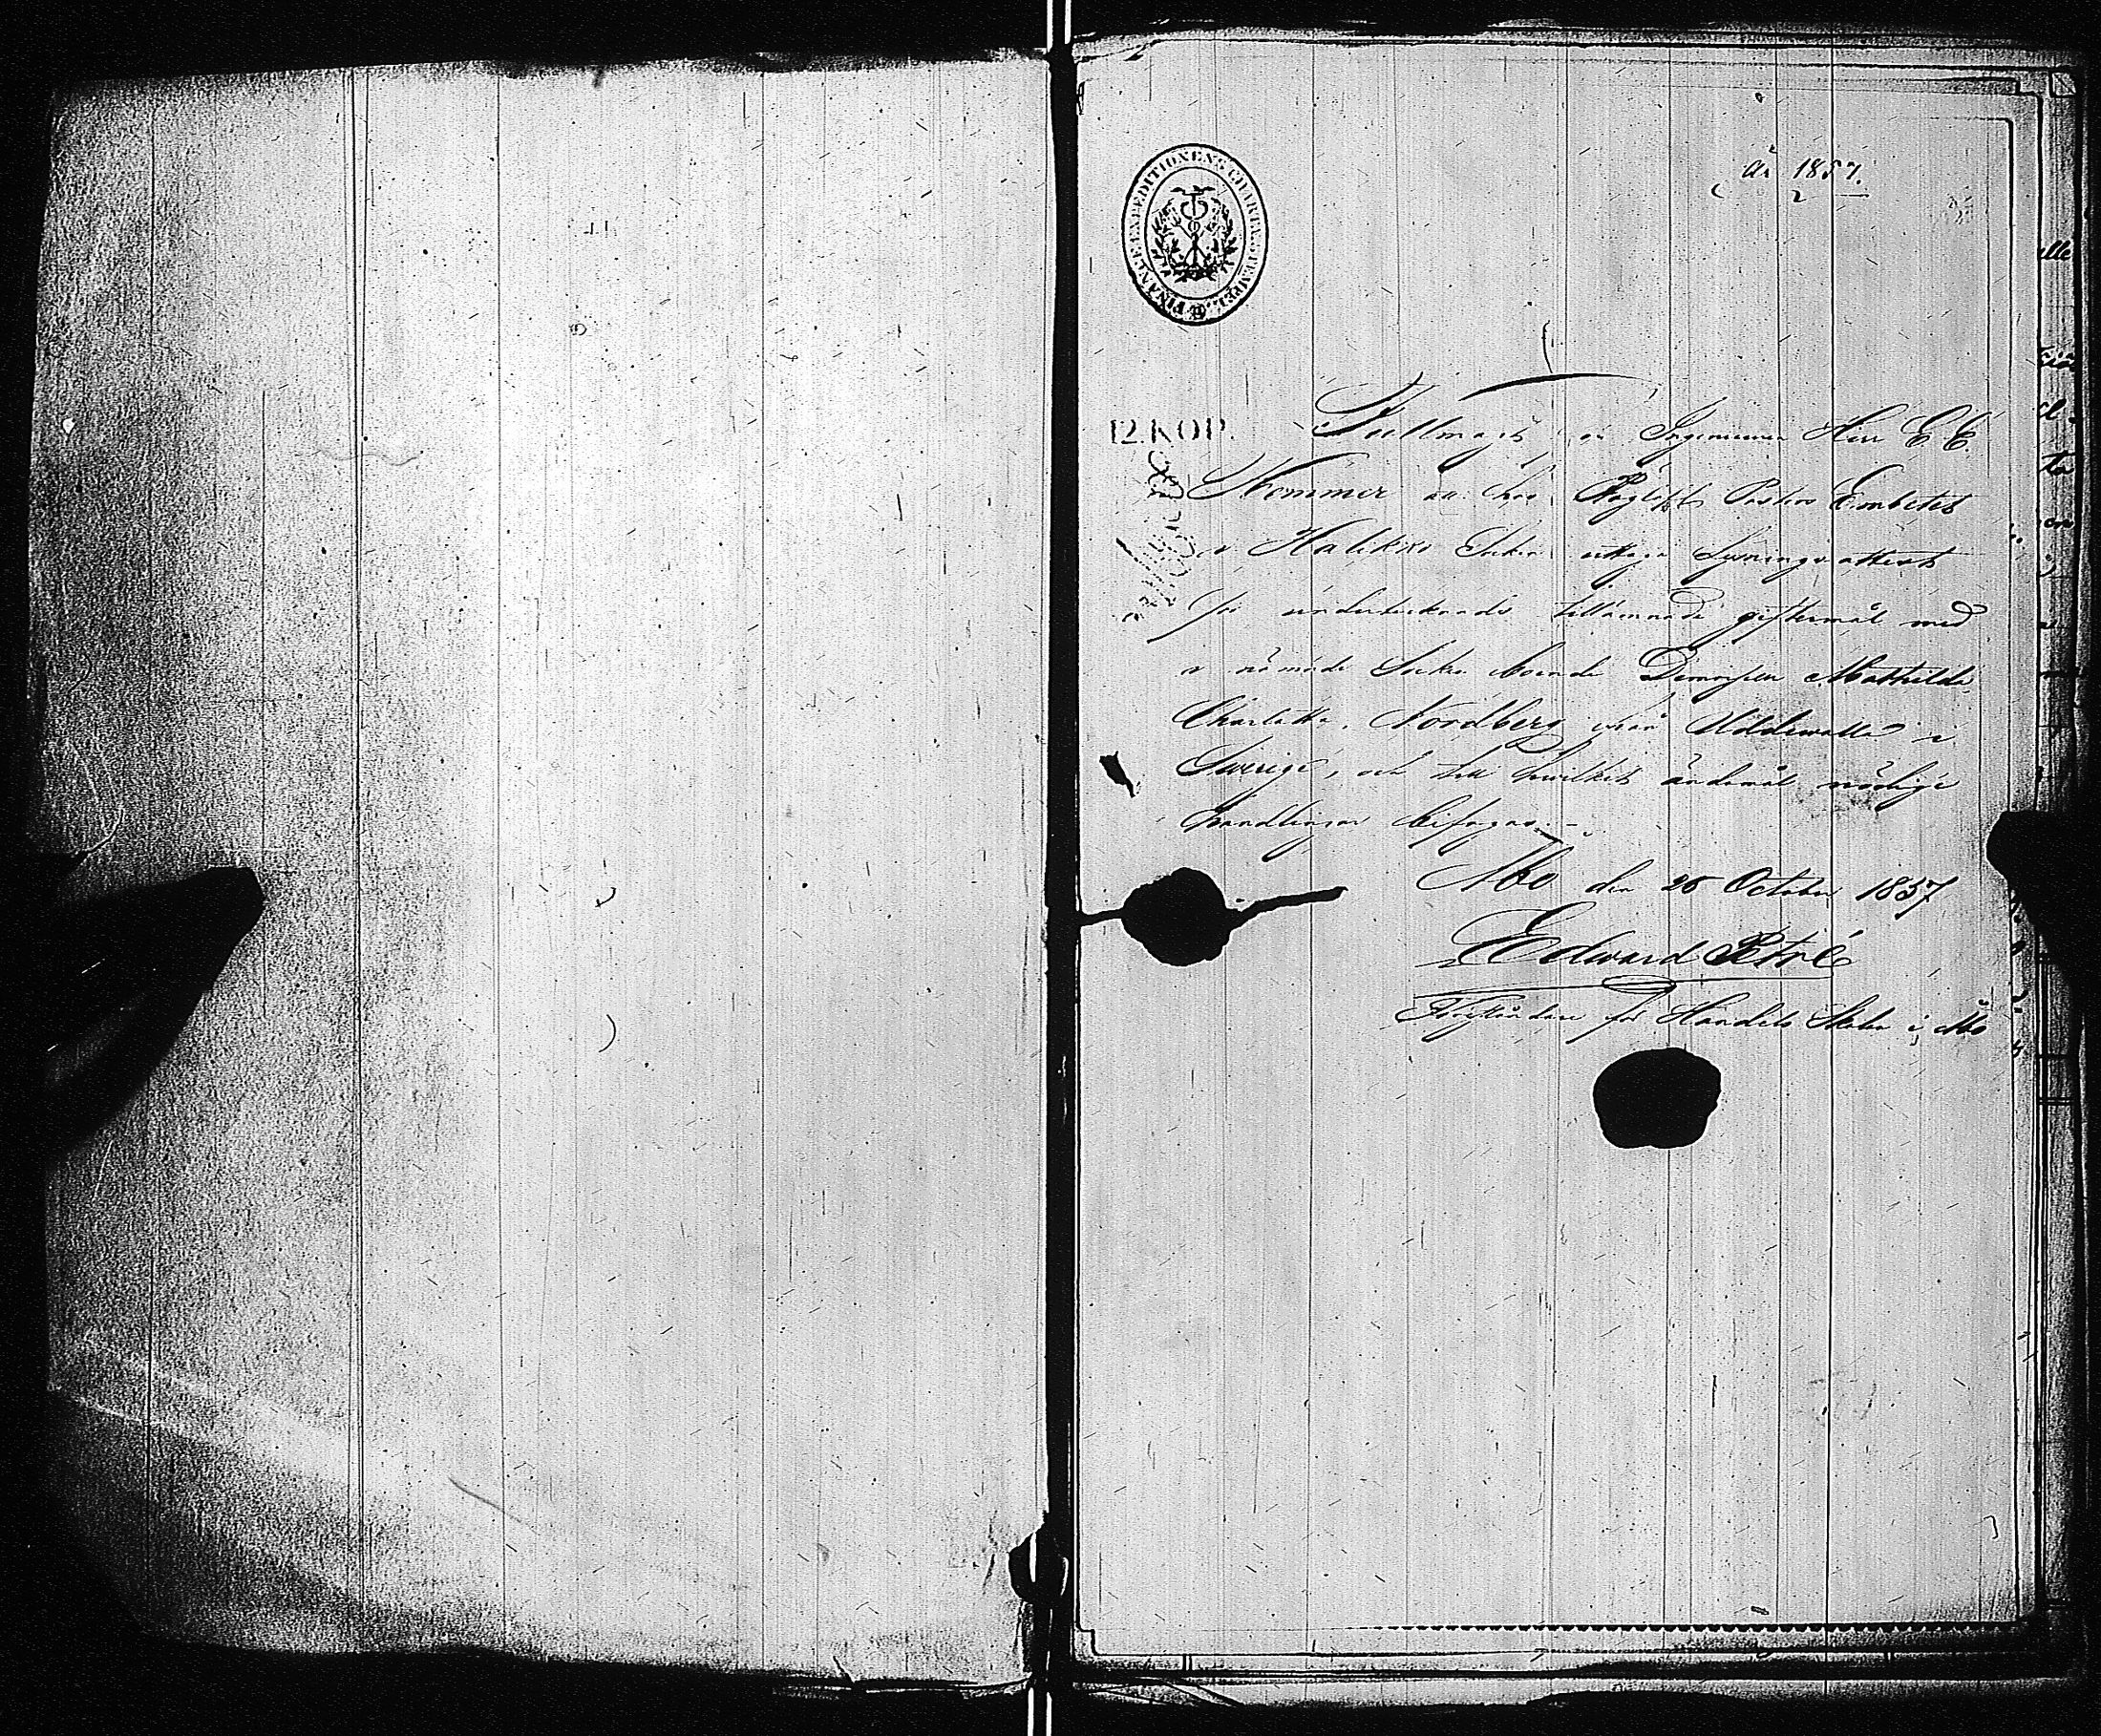 År 1857.
FINANCE-EXPEDITIONENS CHARTÆ STÄMPEL
12. KOP.
Fullmagt för Ingenieuren Herr C. E.
Stemmer att hos Höglofl. Pastors Embetet
i Halikko Socken uttaga Lysningsattest
för undertecknads tillämnade giftermål med
i nämnde Socken boende Demoisellen Mathilda
Charlotta Nordberg ifrån Uddewalla i
Swerige, och till hwilket ändamål nödige
handlingar bifogas.—
Åbo den 26 October 1857
Edward Etré
Föreståndare för Handels Skolan i Åbo